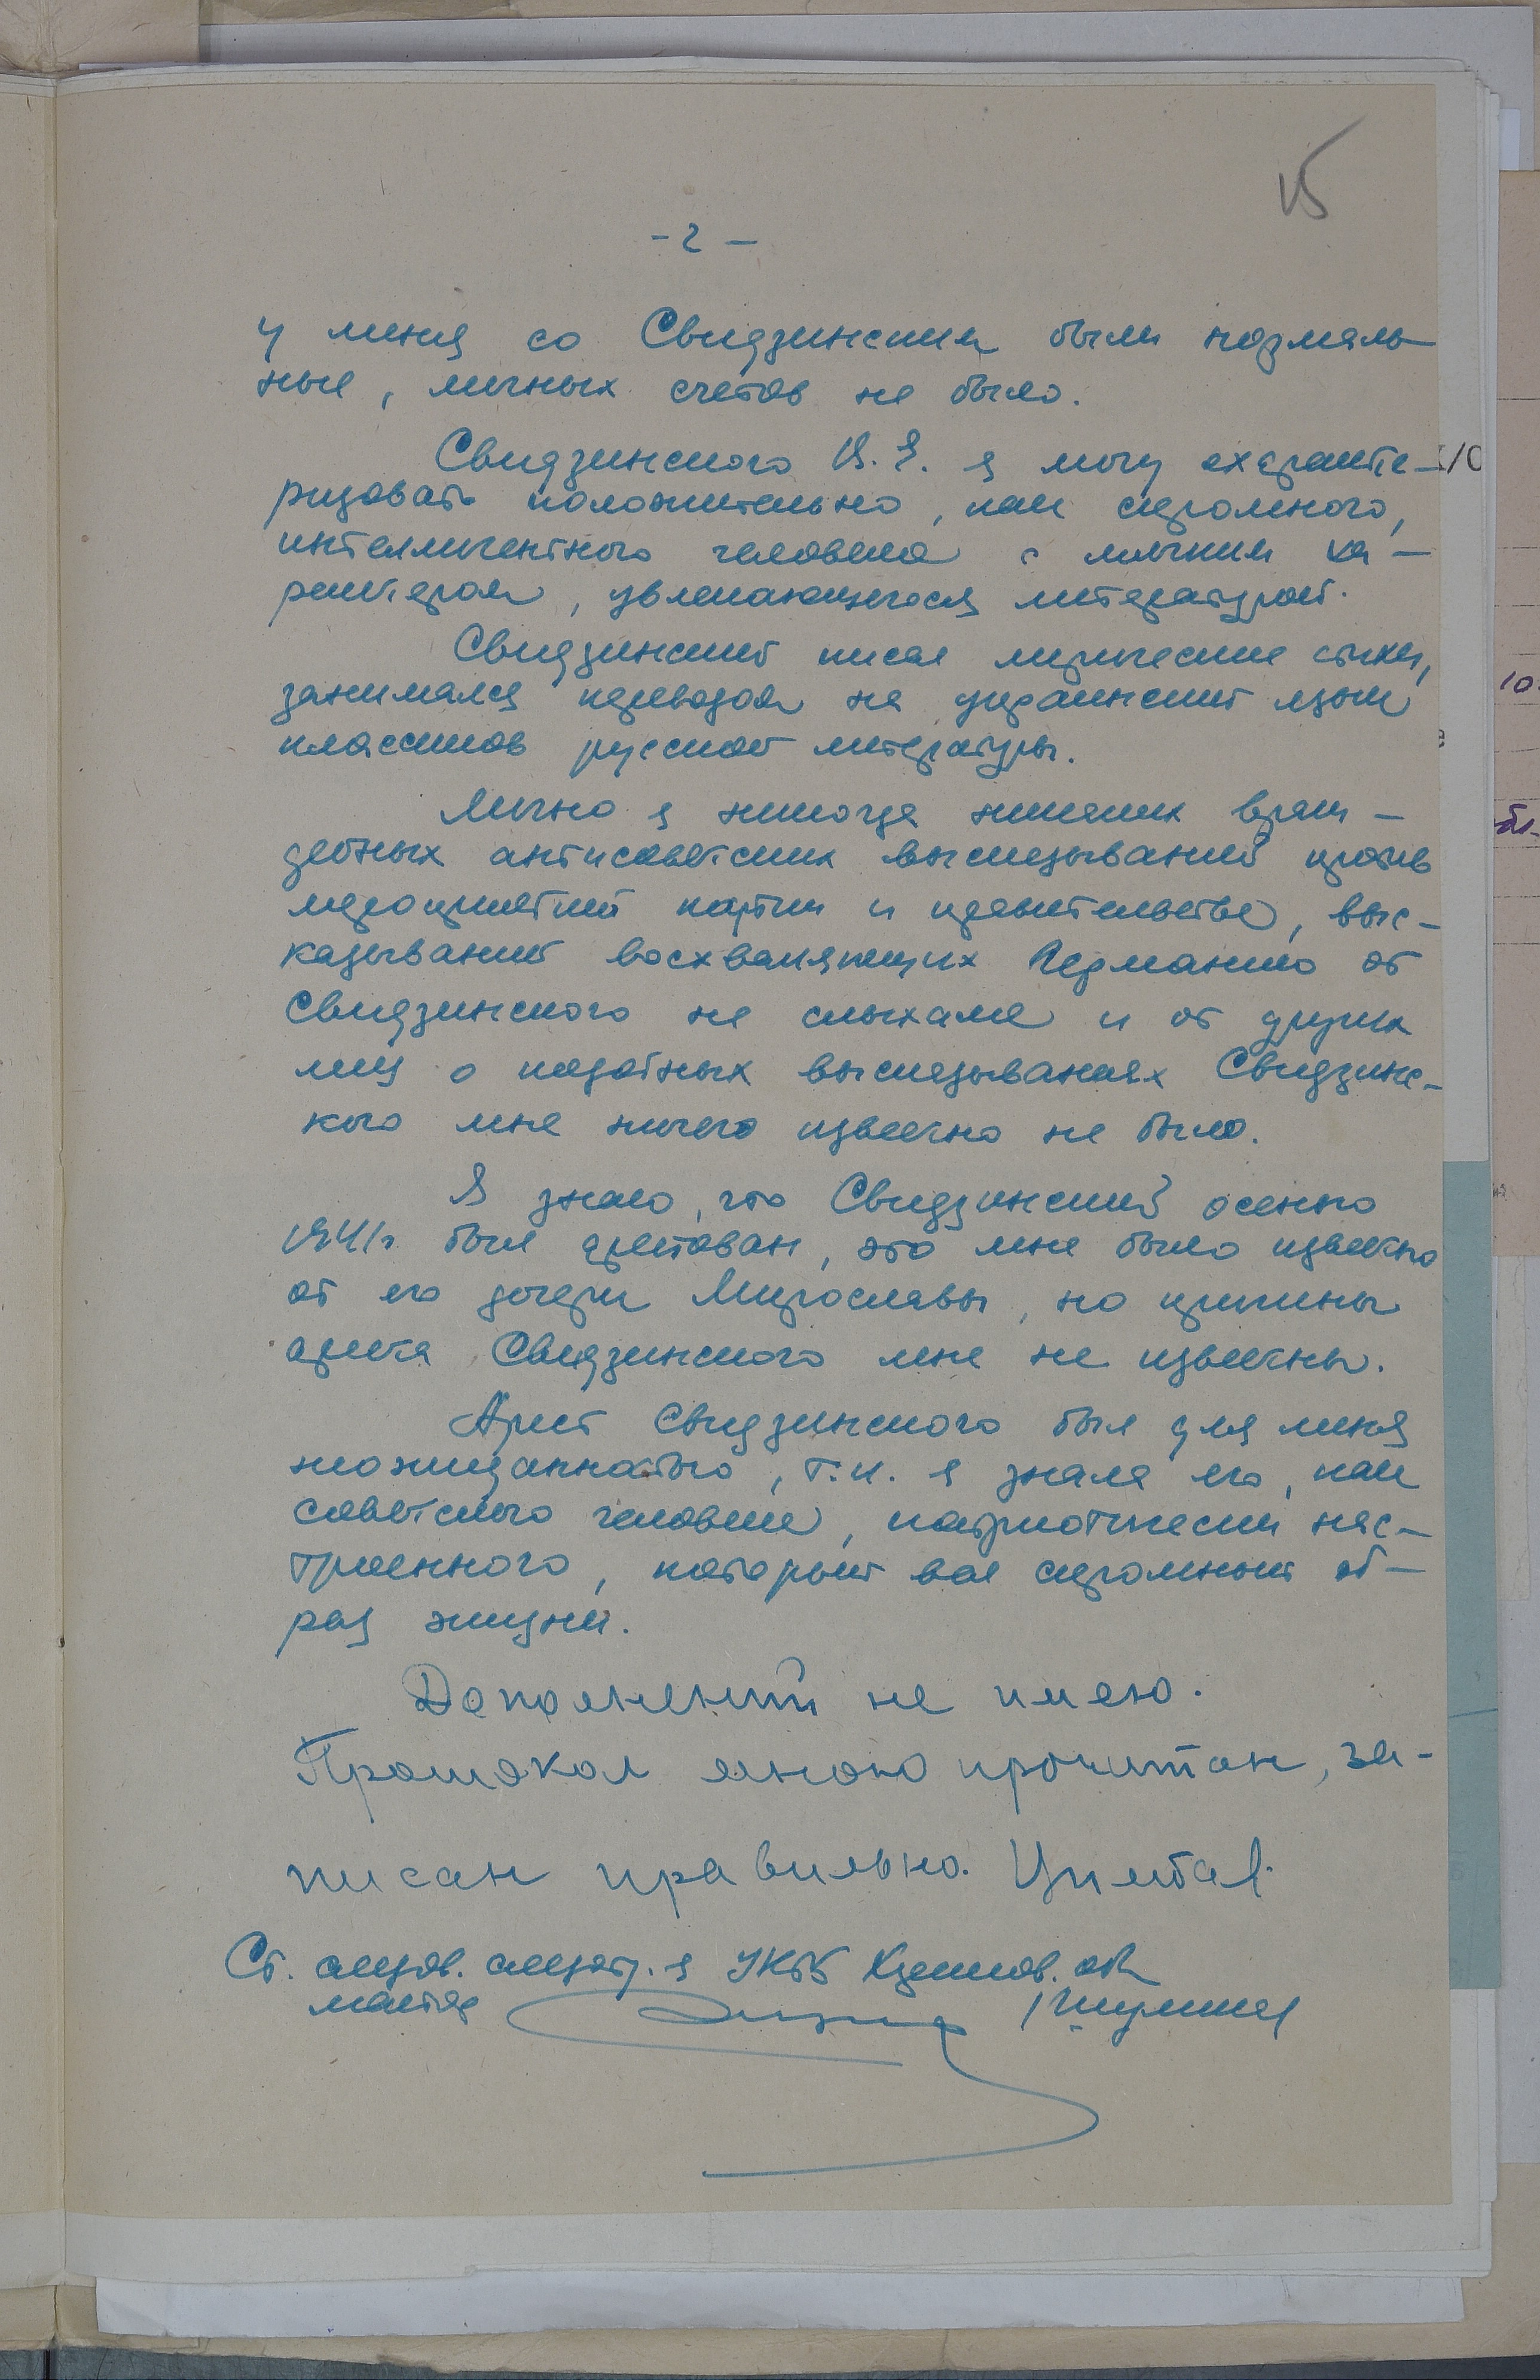 15
- 2 -
у меня со Свидзинским были нормаль-
ные, личных счетов не было.
Свидзинского В. Е. я могу охаракте-
ризовать положительно, как скромного,
интеллигентного человека с мягким ха-
рактером, увлекающегося литературой.
Свидзинский писал лирические стихи,
занимался переводом на украинский язык
классиков русской литературы.
Лично я никогда никаких враж-
дебных антисоветских высказываний против
мероприятий партии и правительства, выс-
казываний восхваляющих Германию от
Свидзинского не слыхала и от других
лиц о подобных высказываниях Свидзинс-
кого мне ничего известно не было.
Я знаю, что Свидзинский осенью
1941г. был арестован, это мне было известно
от его дочери Мирославы, но причины
ареста Свидзинского мне не известны.
Арест Свидзинского был для меня
неожиданностью, т.к. я знала его, как
советского человека, патриотически нас-
троенного, который вел скромный об-
раз жизни.
Дополнений не имею.
Протокол мною прочитан, за-
писан правильно.
Ст. следов. следотд-я УКГБ Харьков. обл
майор